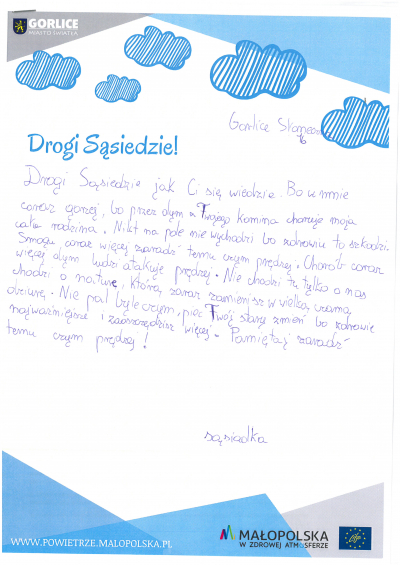 GORLICE
MIASTO ŚWIATŁA
Gorlice
Drogi Sąsiedzie!
Drogi Sąsiedzie jak Ci się wiedzie. Bo u mnie
coraz gorzej, bo przez dym z Twojego komina choruje moja
cała rodzina. Nikt na pole nie wychodzi bo zdrowiu to szkodzi.
Smogu coraz więcej zaradź temu czym prędzej. Chorób coraz
więcej dym ludzi atakuje prędzej. Nie chodzi tu tylko o nas
chodzi o naturę, którą zaraz zamienisz w wielką, czarną
dziurę. Nie pal byle czym, piec Twój stary zmień bo zdrowie
najważniejsze i zaoszczędzisz więcej. Pamiętaj zaradź
temu czym prędzej!
sąsiadka
WWW.POWIETRZE.MALOPOLSKA.PL
MAŁOPOLSKA
W ZDROWEJ ATMOSFERZE